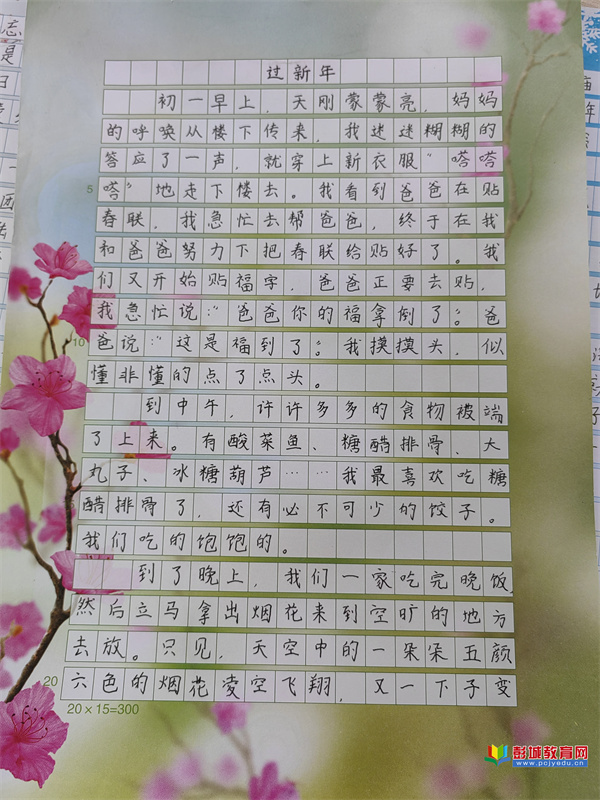 过新年
初一早上，天刚蒙蒙亮，妈妈
的呼唤从楼下传来，我迷迷糊糊的
答应了一声，就穿上新衣服"嗒嗒
5 嗒"地走下楼去。我看到爸爸在贴
春联，我急忙去帮爸爸，终于在我
和爸爸努力下把春联给贴好了。我
们又开始贴福字，爸爸正要去贴，
我急忙说："爸爸你的福拿倒了"。爸
10 爸说："这是福到了"。我摸摸头，似
懂非懂的点了点头。
到中午，许许多多的食物被端
了上来。有酸菜鱼、糖醋排骨、大
丸子、冰糖葫芦……我最喜欢吃糖
醋排骨了，还有必不可少的饺子。
我们吃的饱饱的。
到了晚上，我们一家吃完晚饭，
然后立马拿出烟花来到空旷的地方
去放。只见，天空中的一朵朵五颜
20 六色的烟花凌空飞翔，又一下子变
20×15=300
彭城教育网
www.pcjyedu.cn